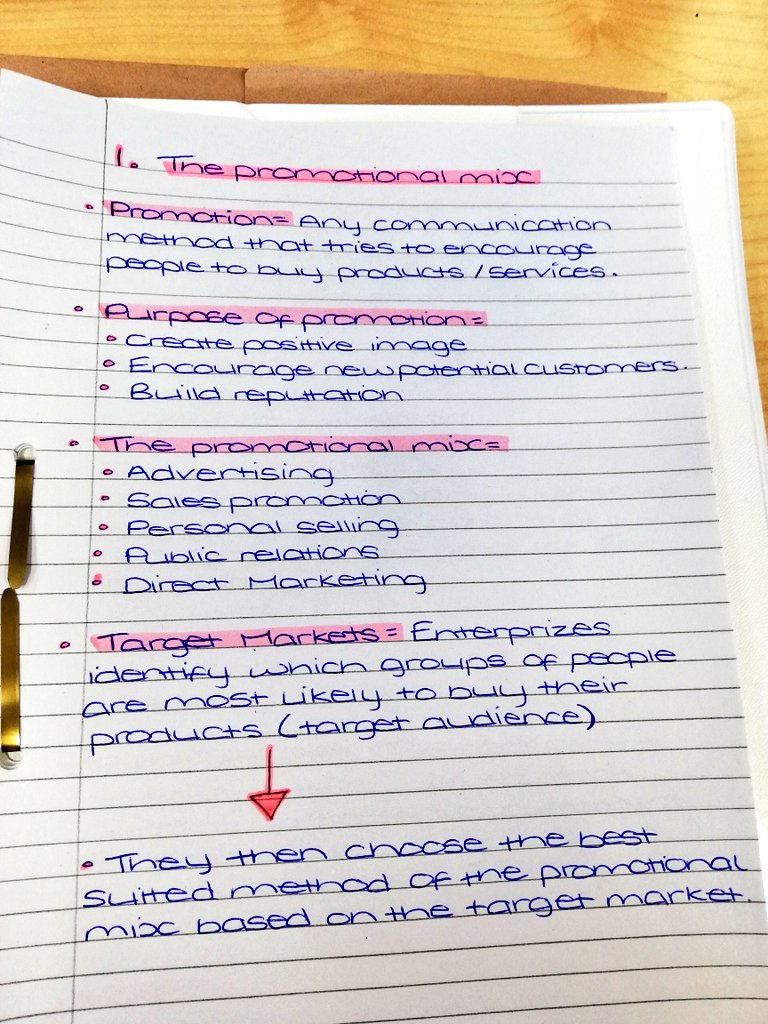 1. The promotional mix
• Promotion= Any communication
method that tries to encourage
people to buy products/services.
• Purpose of promotion=
• Create positive image
• Encourage new potential customers.
• Build reputation
• The promotional mix=
• Advertising
• Sales promotion
• Personal selling
• Public relations
• Direct Marketing
• Target Markets= Enterprizes
identify which groups of people
are most likely to buy their
products (target audience)
• They then choose the best
suited method of the promotional
mix based on the target market.